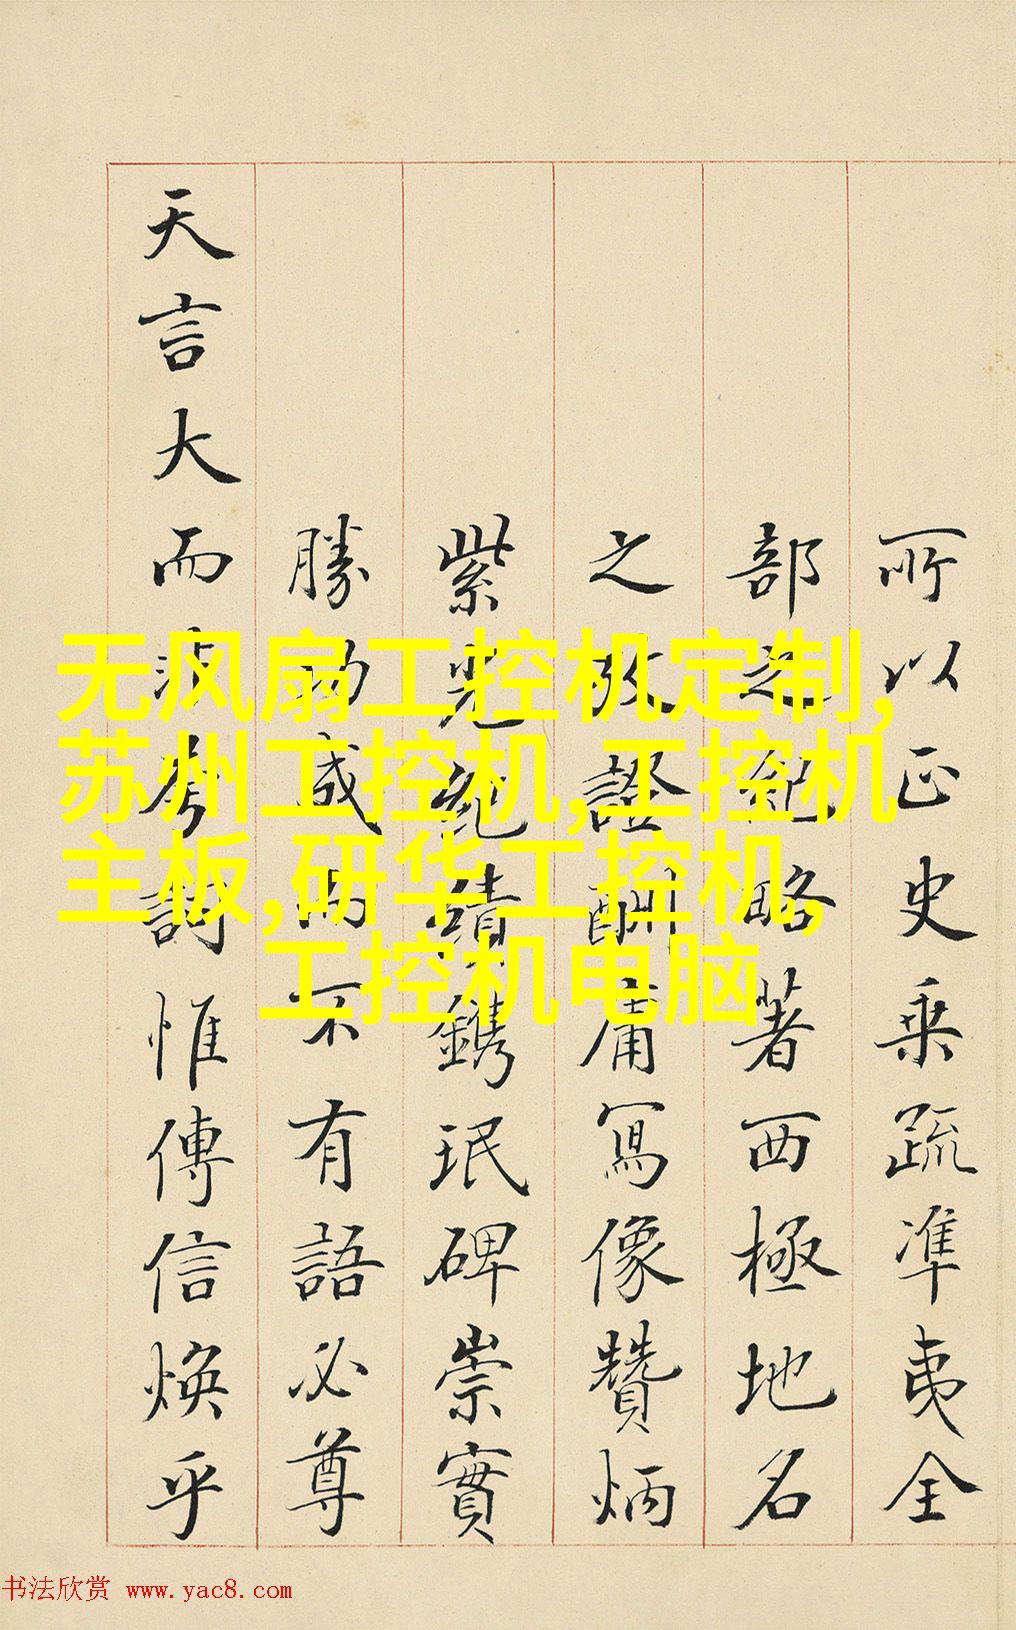 所以正史乘疏準夷全
部之紀略著西極地名
之攷證酬庸寫像贊炳
紫光績鐫珉碑崇實
勝功成而不有語必尊
天言大而詞惟傳信煥乎
无风扇工控机定制,
苏州工控机,工控机
主板,研华工控机,
工控机电脑
书法欣赏 www.yac8.com